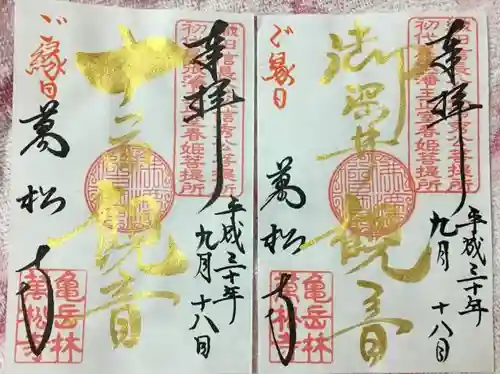 奉拝
織田信長公父信秀公菩提所
初代尾張藩主正室春姫菩提所
平成三十年
九月十八日
十一面観音
ご縁日
萬松寺
亀岳林
萬松寺
奉拝
織田信長公父信秀公菩提所
初代尾張藩主正室春姫菩提所
平成三十年
九月十八日
御深井観音
ご縁日
萬松寺
亀岳林
萬松寺